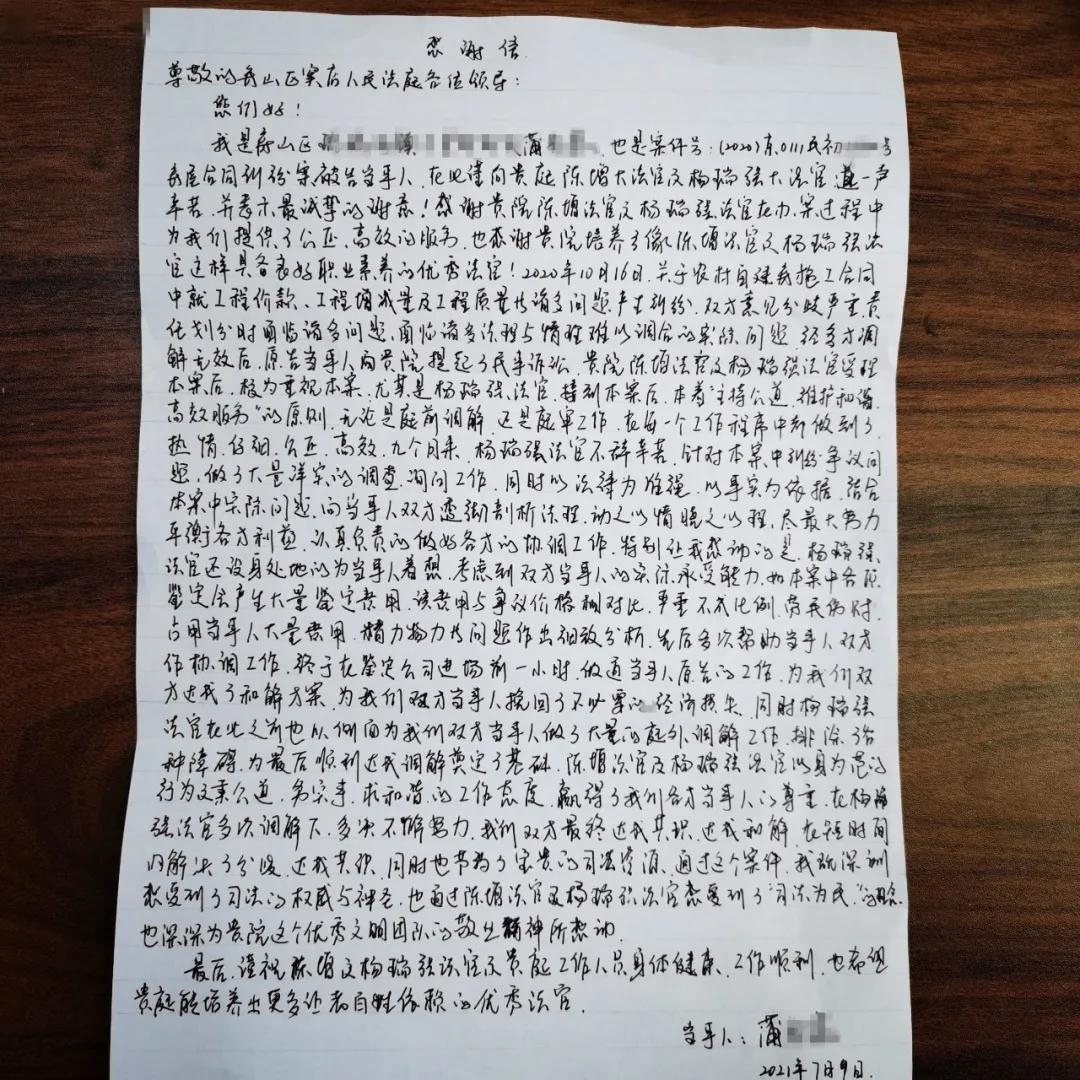 感谢信
尊敬的房山区窦店人民法庭各位领导:
您们好!
我是房山区 蒲 , 也是案件号:(2020)京0111民初 号
房屋合同纠纷案被告当事人, 在此谨向贵庭陈增大法官及杨瑞强大法官道一声
辛苦, 并表示最诚挚的谢意! 感谢贵院陈增法官及杨瑞强法官在办案过程中
为我们提供了公正、高效的服务, 也感谢贵院培养了像陈增法官及杨瑞强法
官这样具备良好职业素养的优秀法官! 2020年10月16日, 关于农村自建房施工合同
中就工程价款、工程增减量及工程质量等诸多问题产生纠纷, 双方意见分歧严重, 责
任划分时面临诸多问题, 面临诸多法理与情理难以调合的实际问题, 经多方调
解无效后, 原告当事人向贵院提起了民事诉讼, 贵院陈增法官及杨瑞强法官受理
本案后, 极为重视本案, 尤其是杨瑞强法官, 接到本案后, 本着“主持公道, 维护和谐,
高效服务”的原则, 无论是庭前调解, 还是庭审工作, 在每一个工作程序中都做到了
热情、仔细、公正、高效, 九个月来, 杨瑞强法官不辞辛苦, 针对本案中纠纷争议问
题, 做了大量详实的调查、询问工作, 同时以法律为准绳, 以事实为依据, 结合
本案中实际问题, 向当事人双方透彻剖析法理, 动之以情晓之以理, 尽最大努力
平衡各方利益, 认真负责的做好各方的协调工作, 特别让我感动的是, 杨瑞强
法官还设身处地的为当事人着想, 考虑到双方当事人的实际承受能力, 如本案中各项
鉴定会产生大量鉴定费用, 该费用与争议价格相对比, 严重不成比例, 劳民伤财,
占用当事人大量费用、精力物力等问题作出细致分析, 先后多次帮助当事人双方
作协调工作, 终于在鉴定公司进场前一小时, 做通当事人原告的工作, 为我们双
方达成了和解方案, 为我们双方当事人挽回了不必要的经济损失, 同时杨瑞强
法官在此之前也从侧面为我们双方当事人做了大量的庭外调解工作, 排除了各
种障碍, 为最后顺利达成调解奠定了基础, 陈增法官及杨瑞强法官以身为范的
行为及秉公道、务实事、求和谐的工作态度, 赢得了我们各方当事人的尊重, 在杨瑞
强法官多次调解下, 多次不懈努力, 我们双方最终达成共识, 达成和解, 在短时间
内解决了分歧, 达成共识, 同时也节省了宝贵的司法资源, 通过这个案件, 我既深刻
感受到了司法的权威与神圣, 也通过陈增法官及杨瑞强法官感受到了“司法为民”的理念,
也深深为贵院这个优秀文明团队的敬业精神所感动.
最后, 谨祝陈增及杨瑞强法官及贵庭工作人员身体健康、工作顺利, 也希望
贵庭能培养出更多让老百姓依赖的优秀法官.
当事人: 蒲
2021年7月9日.